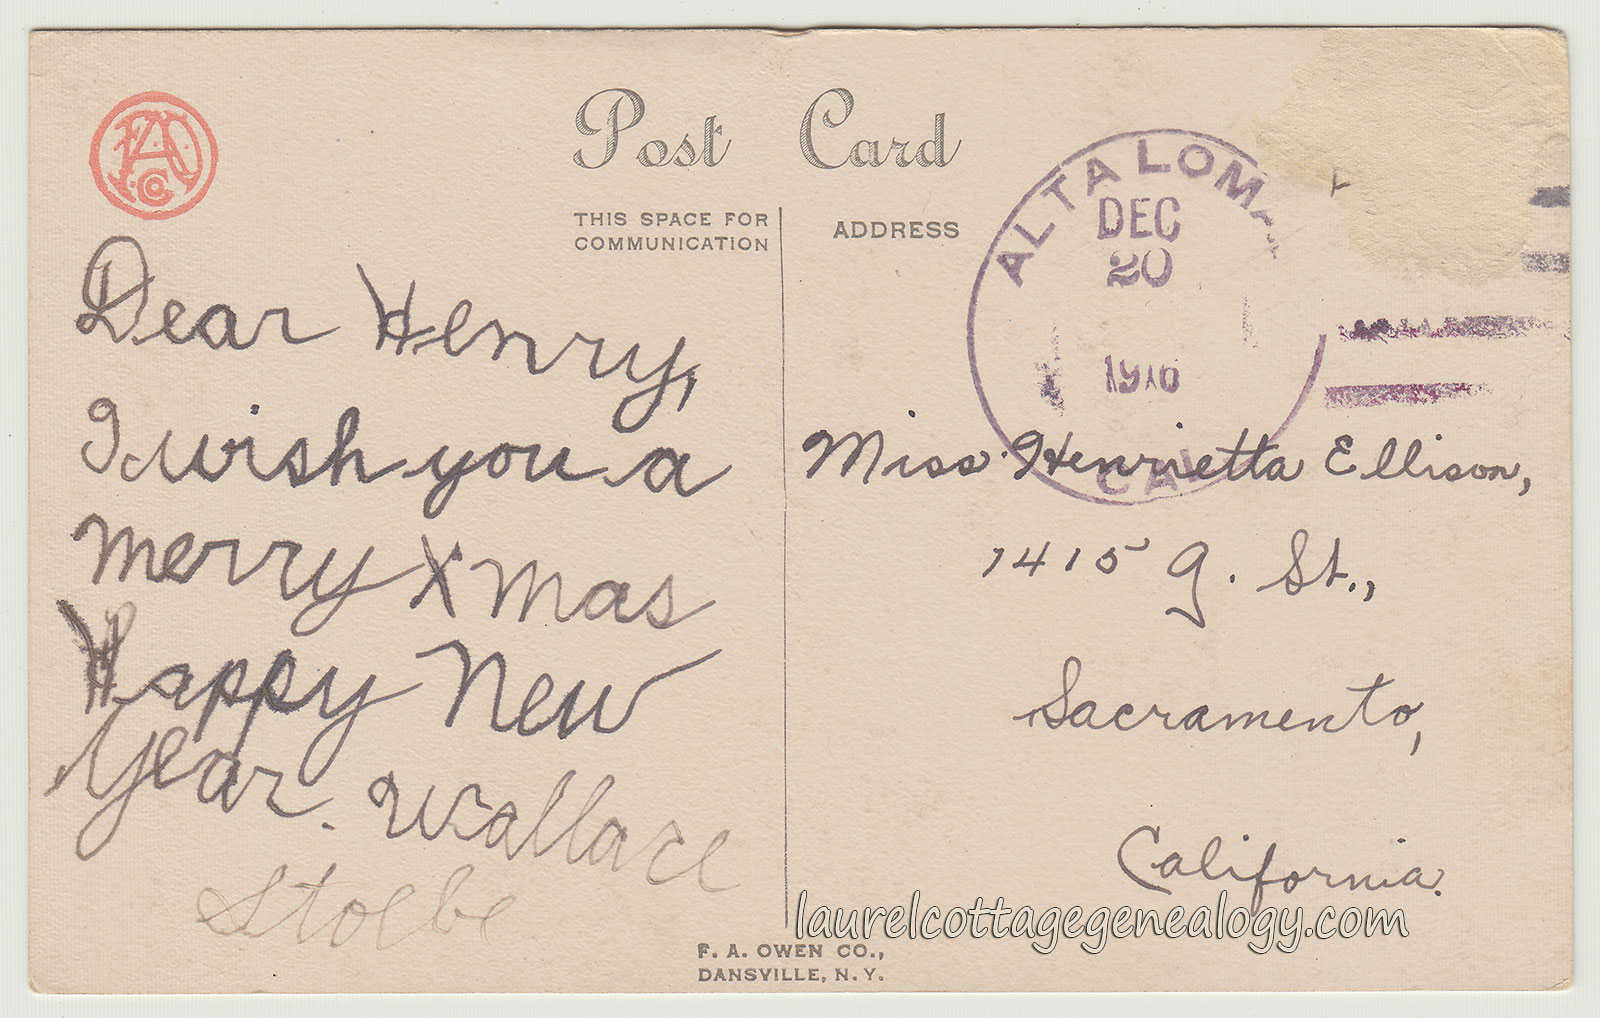 Post Card
THIS SPACE FOR
COMMUNICATION
ADDRESS
ALTA LOMA
DEC
20
1916
CAL
Dear Henry,
I wish you a
merry Xmas
Happy New
Year. Wallace
Stoebe
Miss Henrietta Ellison,
1415 G. St.,
Sacramento,
California.
laurelcottagegenealogy.com
F. A. OWEN CO.,
DANSVILLE, N. Y.
FAO
Co